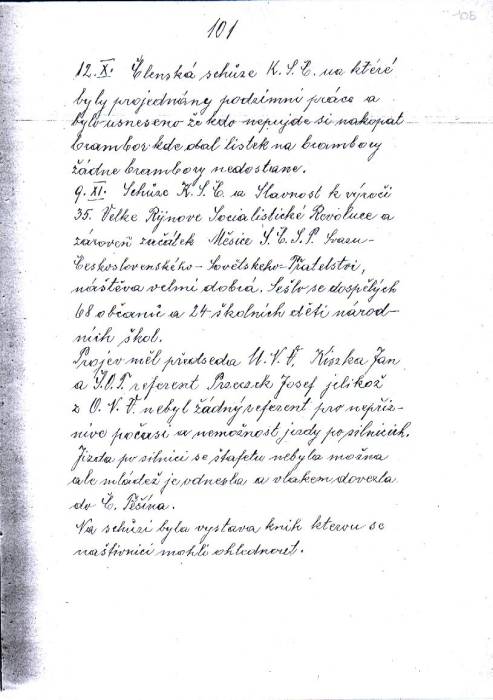 101
105
12.X. Členská schůze K.S.Č. na které
byly projednány podzimní práce a
bylo usneseno že kdo nepujde si nakopat
brambor kde dbal lístek na brambory
žádne brambory nedostane.
9. XI. Schůze K.S.Č. a Slavnost k výročí
35. Velke Řijnove Socialistické Revoluce a
zároveň začátek Měsíce S.Č.S.P. Svazu-
Československého-Sovětskeho-Přatelství,
náštěva velmi dobrá. Sešlo se dospělých
68 občanů a 24 školních dětí národ-
ních škol.
Projev měl předseda M.N.V. Kiszka Jan
a referent Josef jelikož
z O.N.V. nebyl žádný referent pro nepříz-
nive počasi a nemožnost jezdy po silnicích.
Jízda po silnici se štafetu nebyla možna
ale mládež je odnesla a vlakem dovezla
do Č. Těšína.
Na schůzi byla vystava knih kterou se
naštivnici mohli ohlednout.